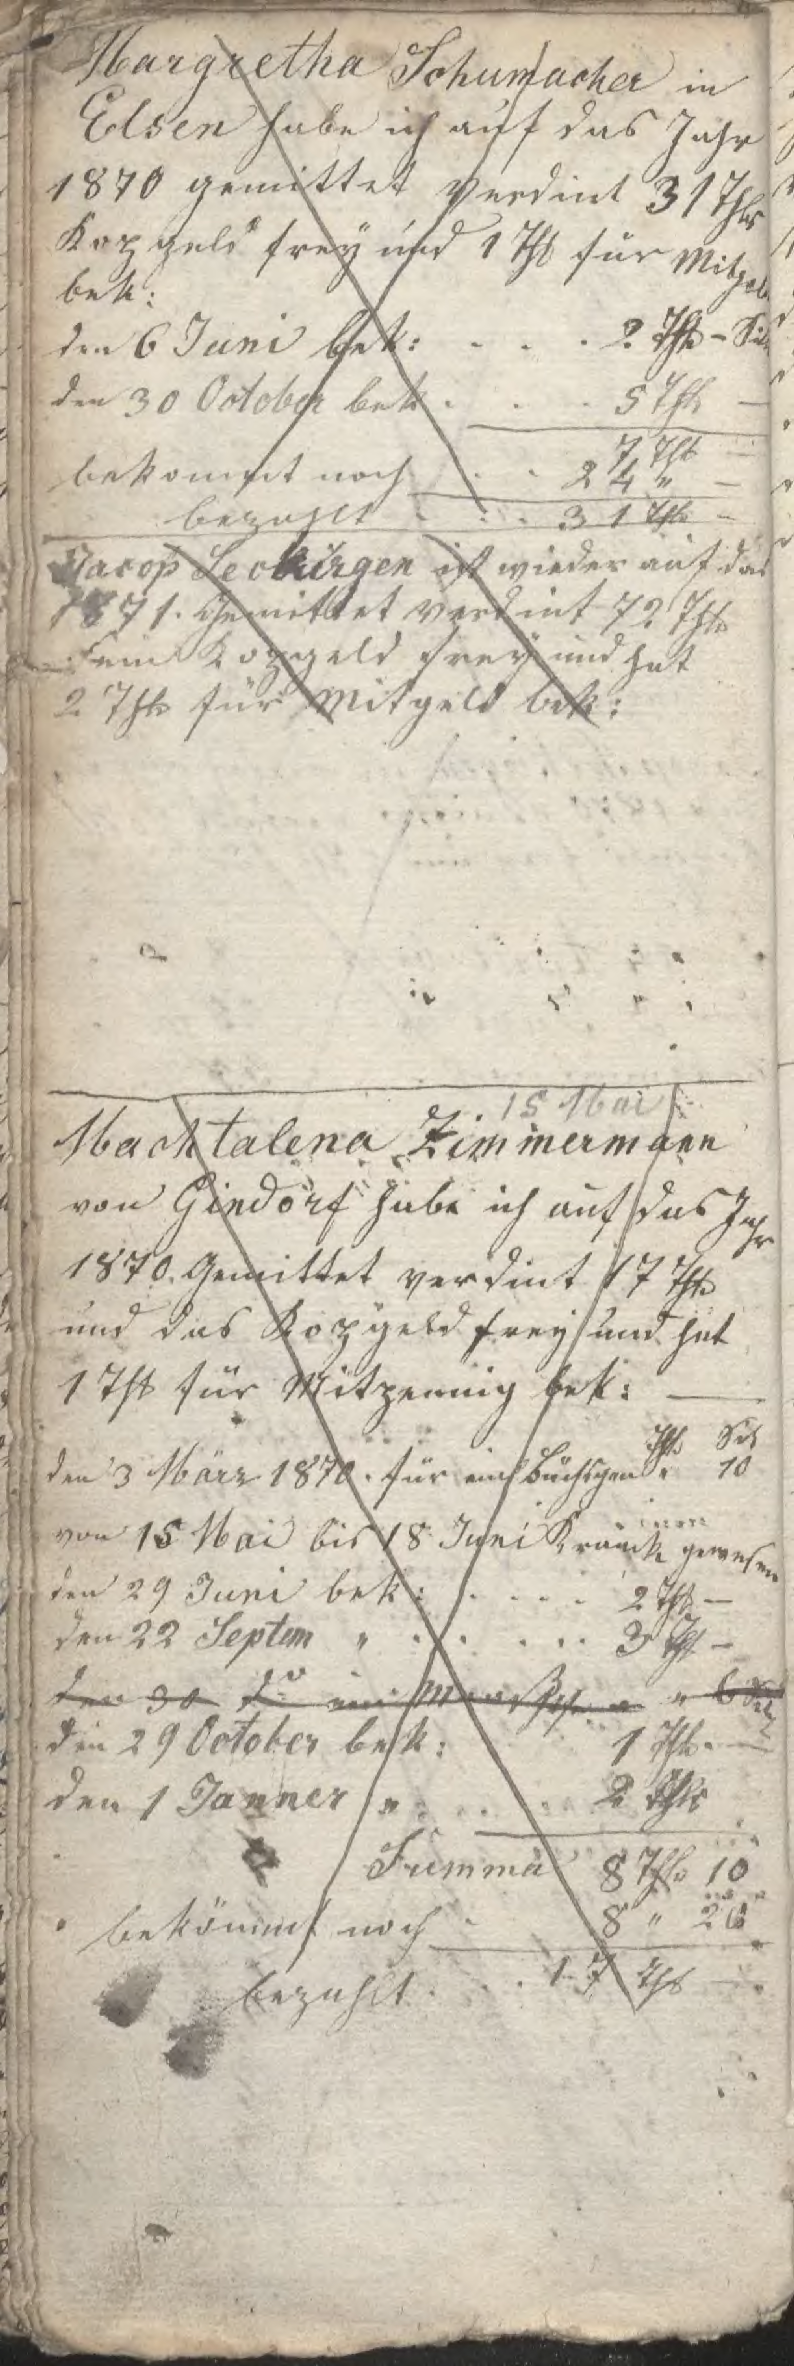 Margretha Schumacher in
Elsen habe ich auf das Jahr
1870 gemittet verdint 31 Thlr
Kopgeld frey und 1 Thl für Mitgeld
bek:
den 6 Juni bek: . . . 2 Thlr – Sil
den 30 October bek . . . 5 Thlr —
7 Thl —
bekommt noch . . 24 " —
bezahlt . . . 31 Thlr –
Jacop Seckirgen ist wieder auf das
1871. Gemittet verdint 72 Thlr
sein Kopgeld frey und hat
2 Thlr für Mitgeld bek:
15 Mai
Machtalena Zimmermann
von Gindorf habe ich auf das Jahr
1870. Gemittet verdint 17 Thlr
und das Kopgeld frey und hat
1 Thl für Mitpennig bek: —
Thlr Sil
den 3 März 1870. für ein Büchsgen " 10
von 15 Mai bis 18 Juni Kranck gewesen
den 29 Juni bek: . . . . 2 Thl —
den 22 Septem " . . . . . 3 Thl –
den 30 do ein " 6 Sil
den 29 October bek: 1 Thl. —
den 1 Janner " . . . . 2 Thlr
Summa 8 Thlr 10
bekömmt noch . 8 " 20
bezahlt . . . 17 Thl —